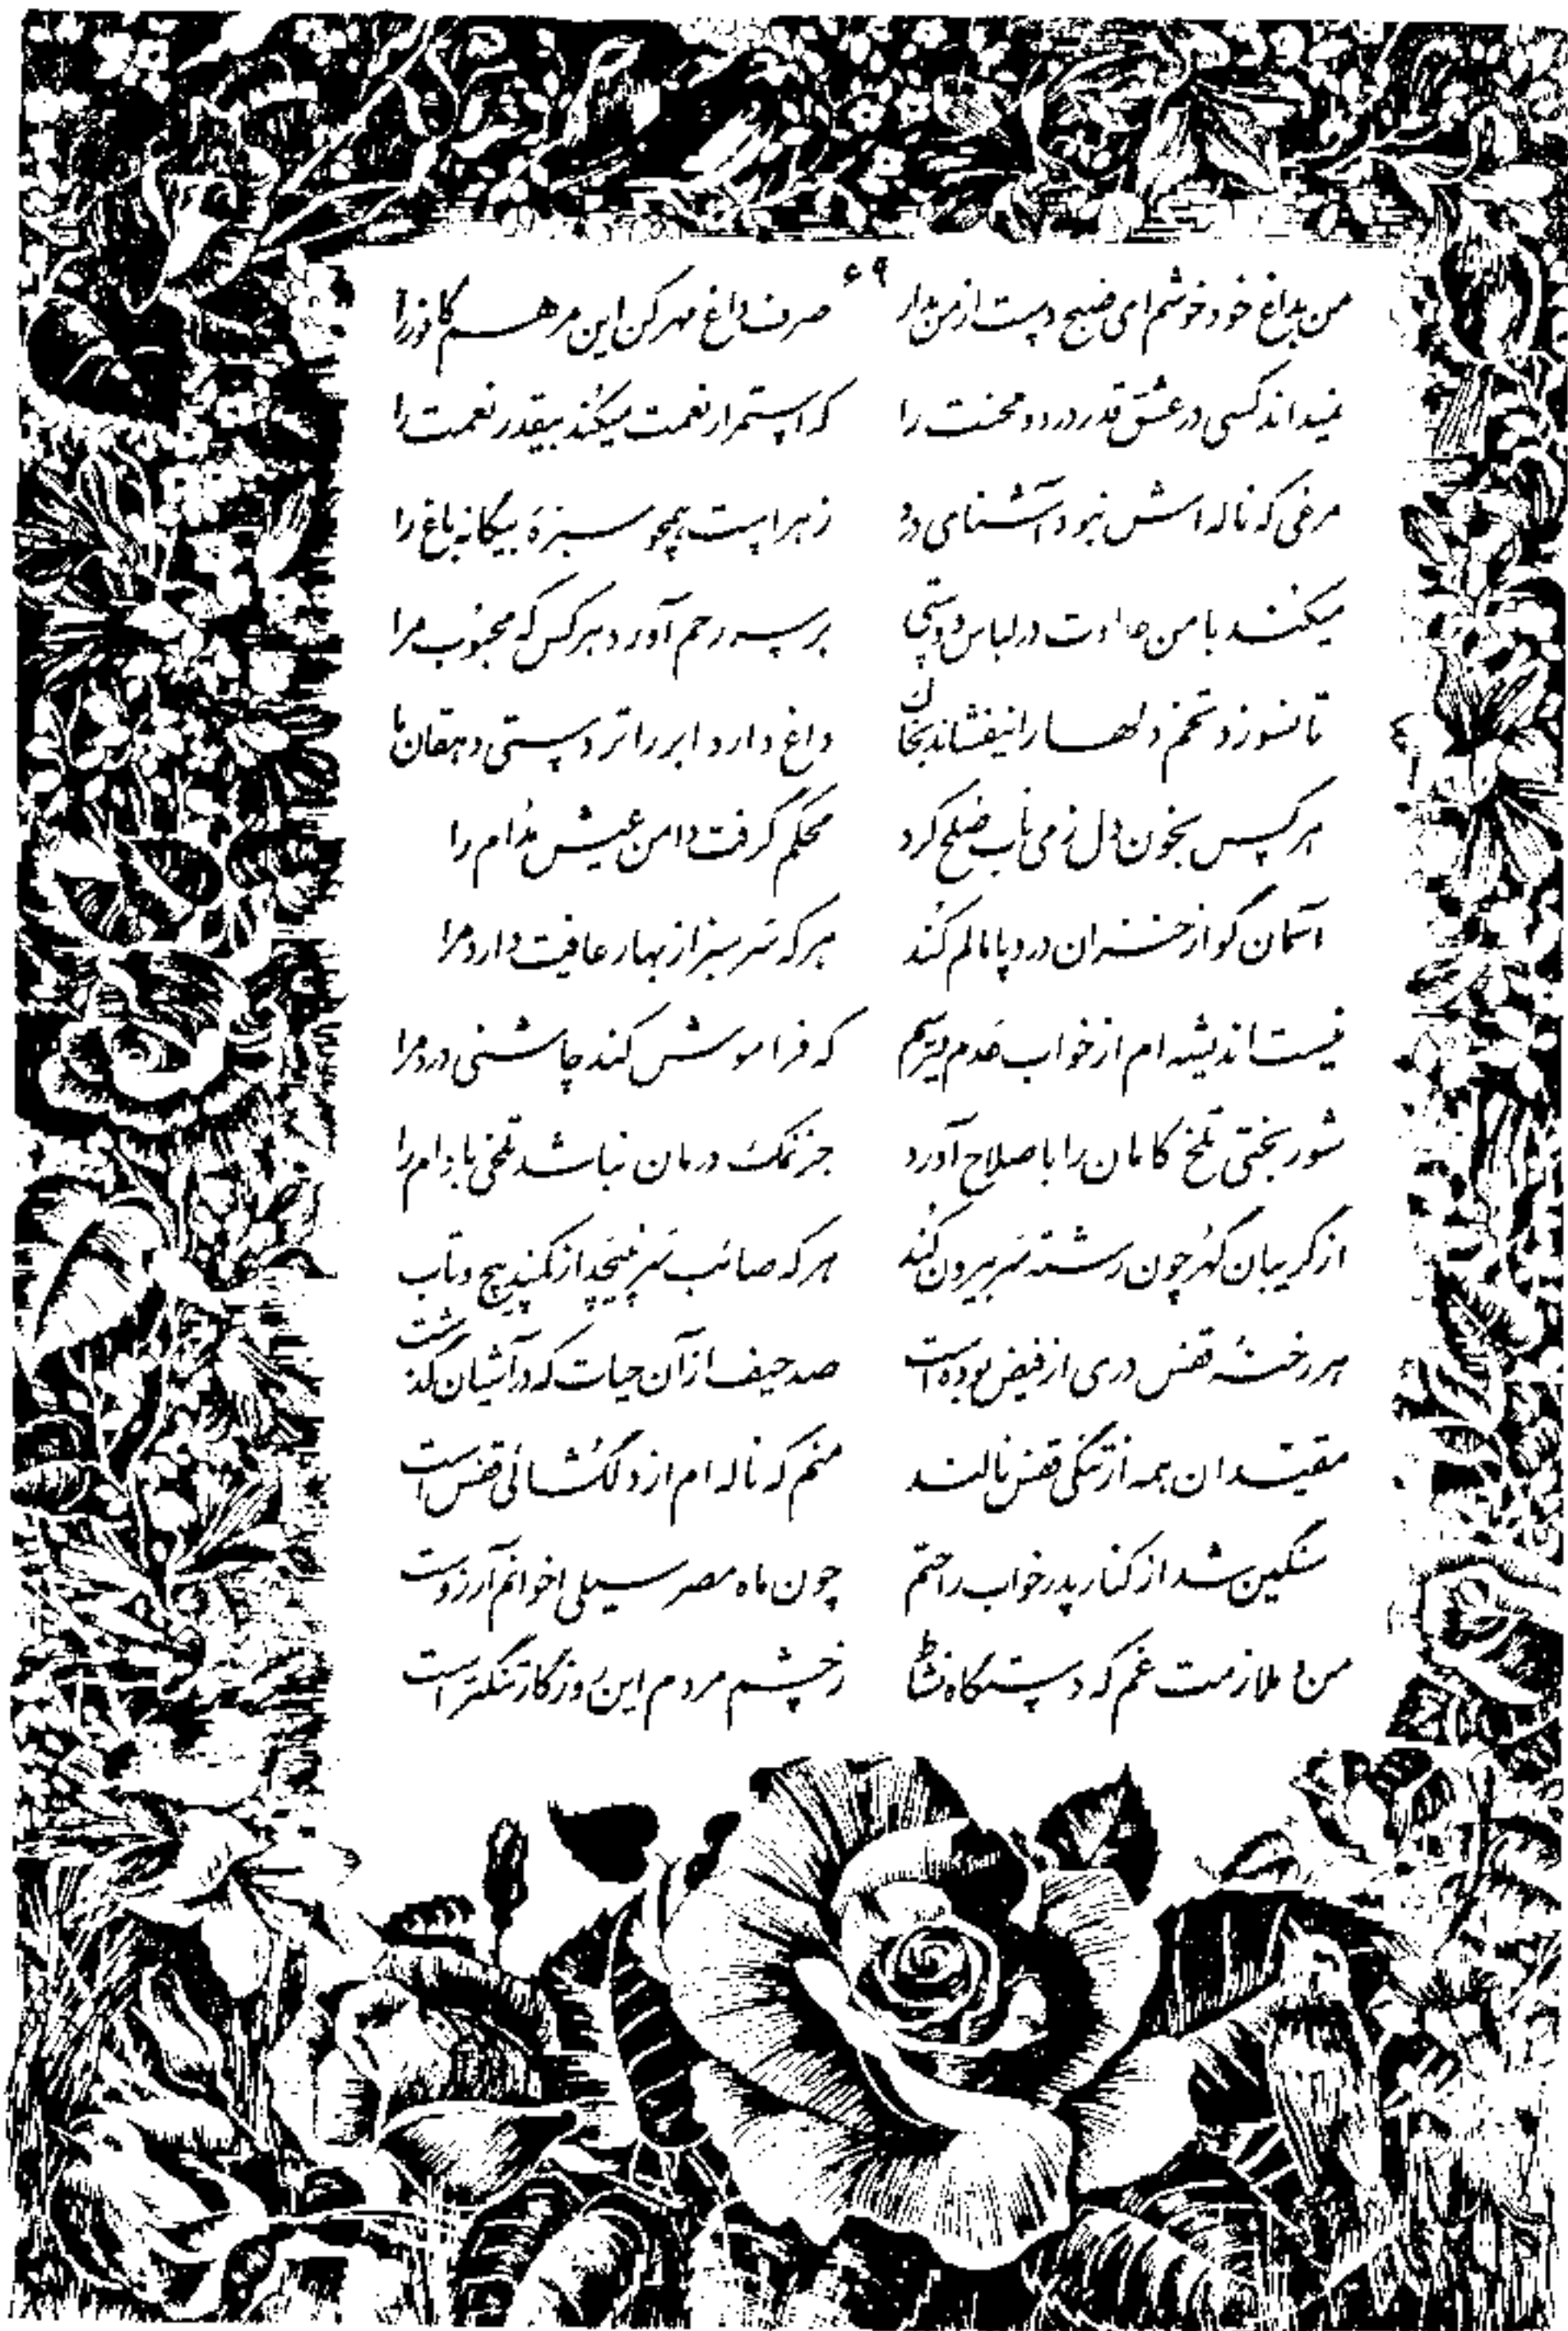 ۶۹
من بداغ خود خوشم ای صبح دست از من بدار صرف داغ مهر کن این مرهم کافور را
نمیداند کسی در عشق قدر درد و محنت را که استمرار نعمت میکند بیقدر نعمت را
مرغی که ناله اش نبود آشنای درد زهر است همچو سبزهٔ بیگانه باغ را
میکند با من عداوت در لباس دوستی بر سر رحم آورد هر کس که محبوب مرا
تا نسوزد تخم دلها را نیفشاند بخاک داغ دارد ابر را تردستی دهقان ما
هر کس بخون دل ز می ناب صلح کرد محکم گرفت دامن عیش مدام را
آسمان گو از خزان درد پامالم کند هر که سرسبز از بهار عافیت دارد مرا
نیست اندیشه ام از خواب عدم میترسم که فراموش کند چاشنی درد مرا
شوربختی تلخ کامان را باصلاح آورد جز نمک درمان نباشد تلخی بادام را
از گریبان گهر چون رشته سر بیرون کند هر که صائب سر نپیچد از کمند پیچ و تاب
هر رخنهٔ قفس دری از فیض بوده است صد حیف از آن حیات که در آشیان گذشت
مقیدان همه از تنگی قفس نالند منم که ناله ام از دلگشائی قفس است
سنگین شد از کنار پدر خواب راحتم چون ماه مصر سیلی اخوانم آرزوست
من و ملازمت غم که دستگاه نشاط ز چشم مردم این روزگار تنگتر است